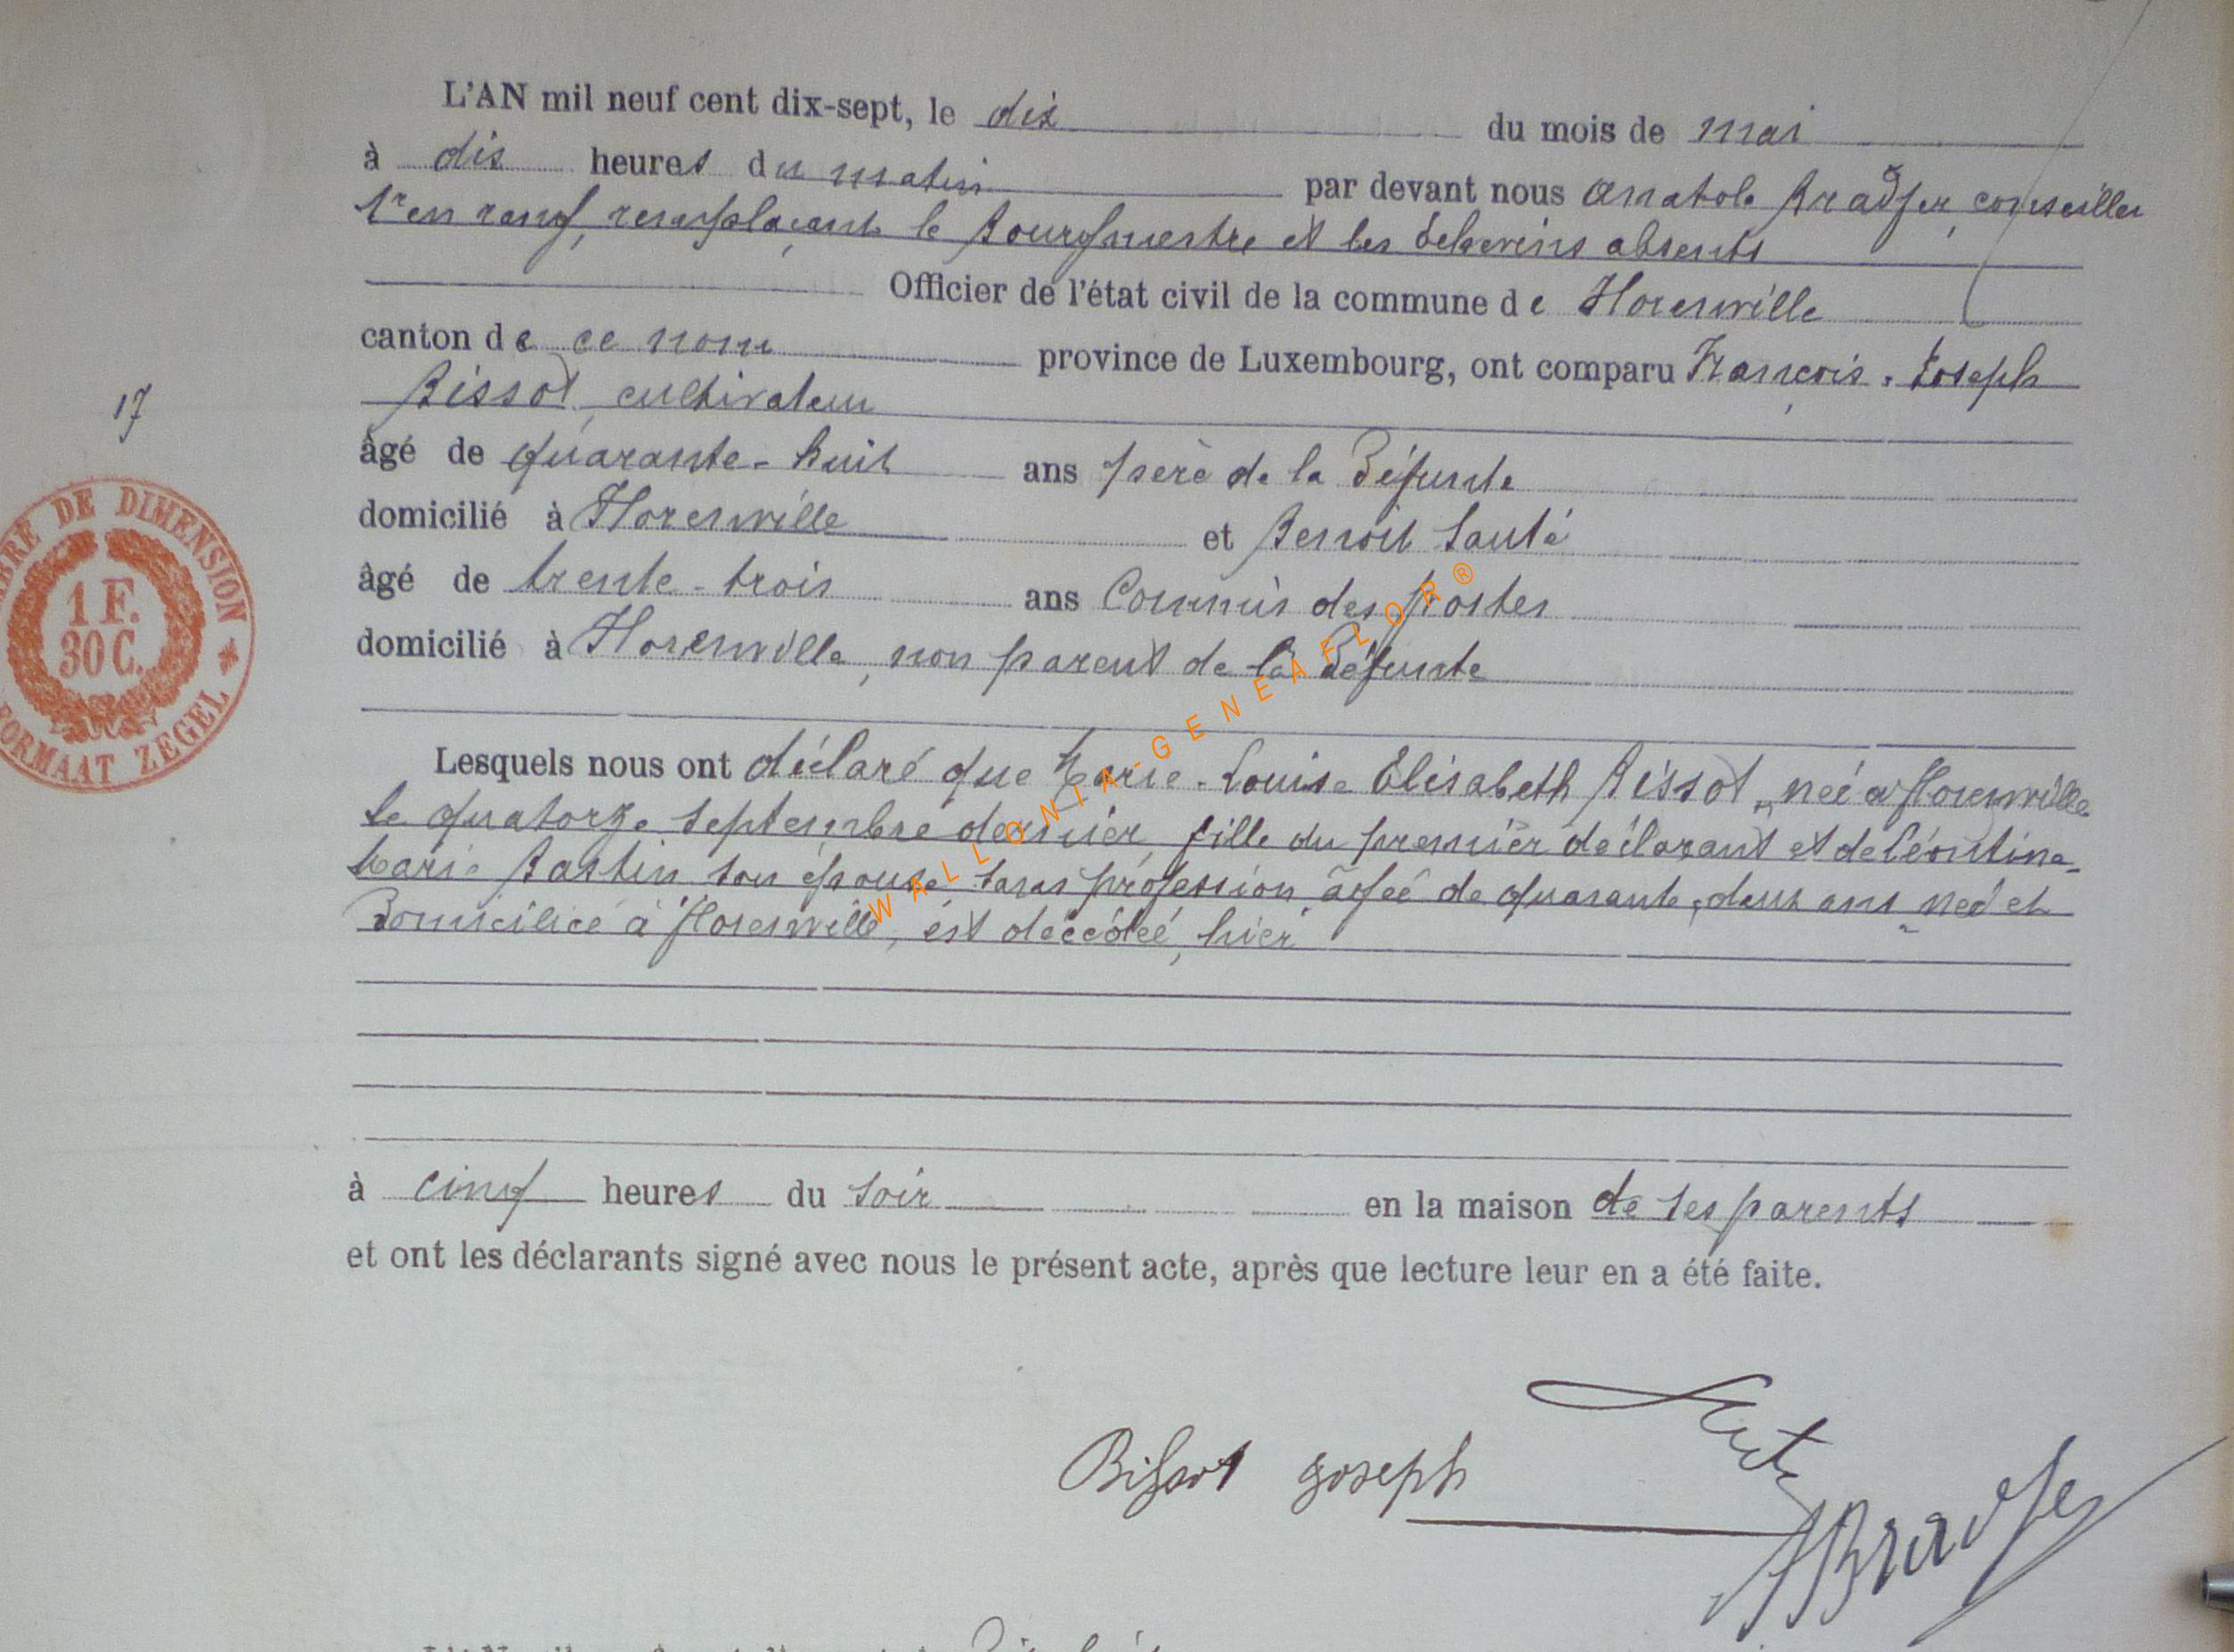 L'AN mil neuf cent dix-sept, le dix du mois de mai
à dix heures du matin par devant nous Anatole Bradfer, conseiller
1r en rang, remplaçant le Bourgmestre et les Echevins absents
Officier de l'état civil de la commune de Florenville
canton de ce nom province de Luxembourg, ont comparu François-Joseph
Bissot, cultivateur
âgé de quarante-huit ans père de la Défunte
17
domicilié à Florenville et Benoit Sauté
âgé de trente-trois ans Commis des postes
domicilié à Florenville, non parent de la Défunte
TIMBRE DE DIMENSION
1 F.
30 C.
FORMAAT ZEGEL
Lesquels nous ont déclaré que Marie-Louise Elisabeth Bissot, née à Florenville
le quatorze septembre dernier, fille du premier déclarant et de Léontine-
Marie Bastin son épouse, sans profession, âgée de quarante-deux ans née et
Domiciliée à Florenville, est décédée, hier
à cinq heures du soir en la maison de ses parents
et ont les déclarants signé avec nous le présent acte, après que lecture leur en a été faite.
Bissot Joseph
Sauté
ABradfer
WALLONIA-GENEAFLOR®